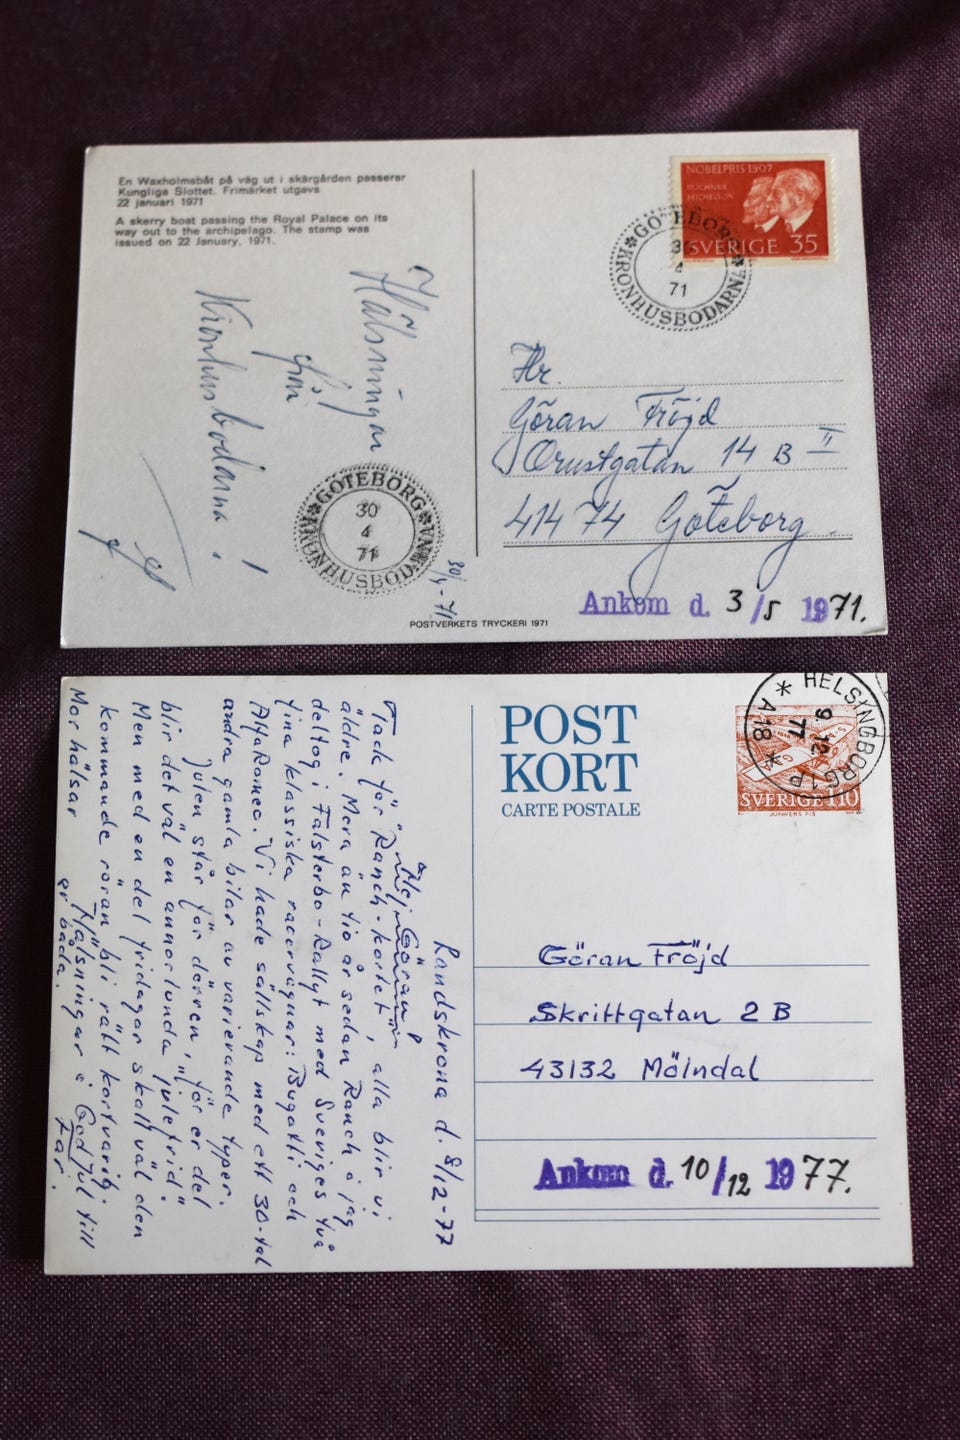 En Waxholmsbåt på väg ut i skärgården passerar
Kungliga Slottet. Frimärket utgavs
22 januari 1971
A skerry boat passing the Royal Palace on its
way out to the archipelago. The stamp was
issued on 22 January, 1971.
Hälsningar
från
Kronhusbodarna!
GÖTEBORG
30
4
71
KRONHUSBODARNA
30/4-71
POSTVERKETS TRYCKERI 1971
NOBELPRIS 1907
BUCHNER
MICHELSON
SVERIGE 35
GÖTEBORG
30
4
71
KRONHUSBODARNA
Hr.
Göran Fröjd
Orustgatan 14 B II
414 74 Göteborg.
Ankom d. 3/5 1971.
Landskrona d. 8/12-77
Hej Göran!
Tack för "Ranch-kortet", alla blir vi
äldre. Mera än tio år sedan Ranch å jag
deltog i Falsterbo-Rallyt med Sveriges två
fina klassiska racervagnar: Bugatti och
AlfaRomeo. Vi hade sällskap med ett 30-tal
andra gamla bilar av varierande typer.
Julen står för dörren, för er del
blir det väl en annorlunda "julefrid".
Men med en del fridagar skall väl den
kommande röran bli rätt kortvarig.
Mor hälsar
Hälsningar & God Jul till
er båda.
Far.
POST
KORT
CARTE POSTALE
HELSINGBORG 1P
9 12
77
* A 18 *
SVERIGE 110
Göran Fröjd
Skrittgatan 2 B
43132 Mölndal
Ankom d. 10/12 1977.